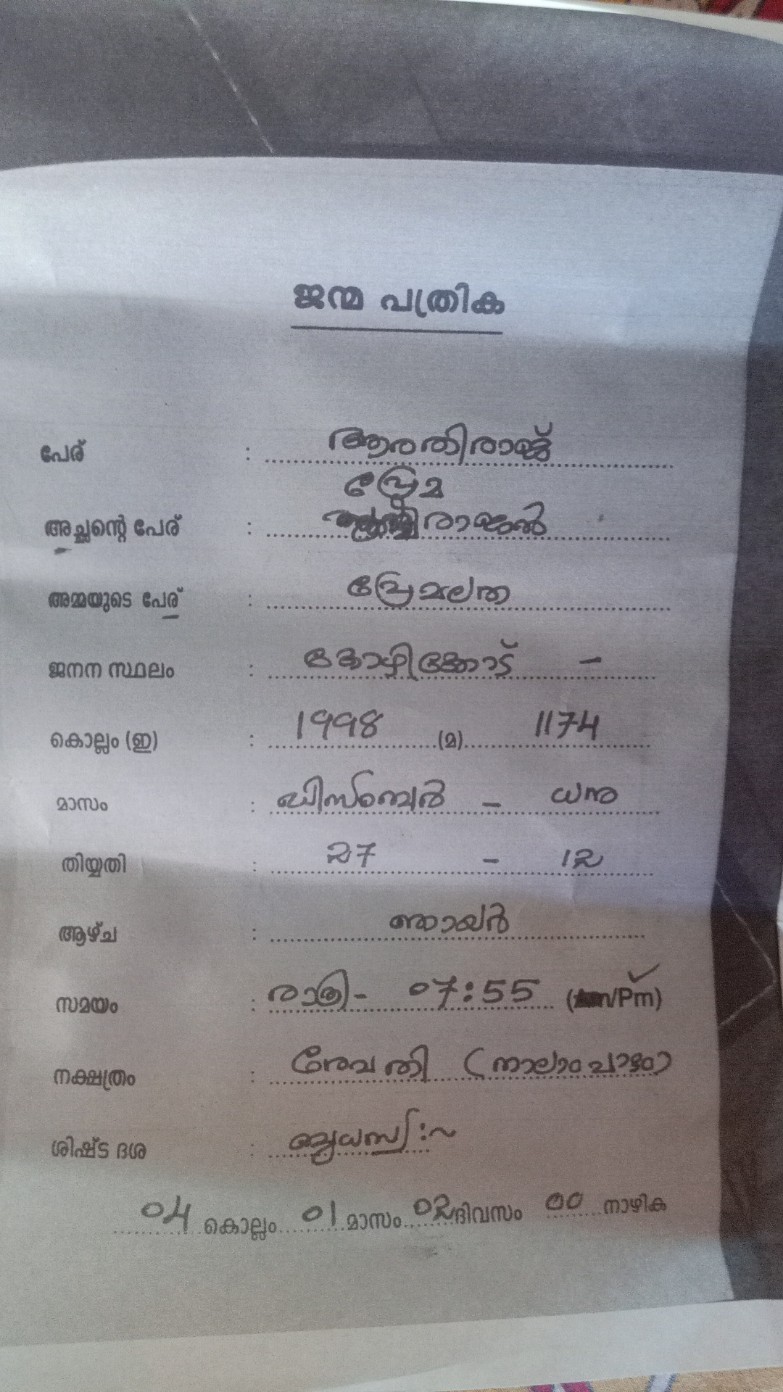 ജന്മ പത്രിക
പേര് : ആരതിരാജ്
പ്രേമ
അച്ഛന്റെ പേര് : രാജൻ
അമ്മയുടെ പേര് : പ്രേമലത
ജനന സ്ഥലം : കോഴിക്കോട് –
കൊല്ലം (ഇ) : 1998 (മ) 1174
മാസം : ഡിസംബർ – ധനു
തിയ്യതി : 27 – 12
ആഴ്ച : ഞായർ
സമയം : രാത്രി – 07:55 (Am/Pm)
നക്ഷത്രം : രേവതി (നാലാംപാദം)
ശിഷ്ട ദശ :
04 കൊല്ലം 01 മാസം 02 ദിവസം 00 നാഴിക